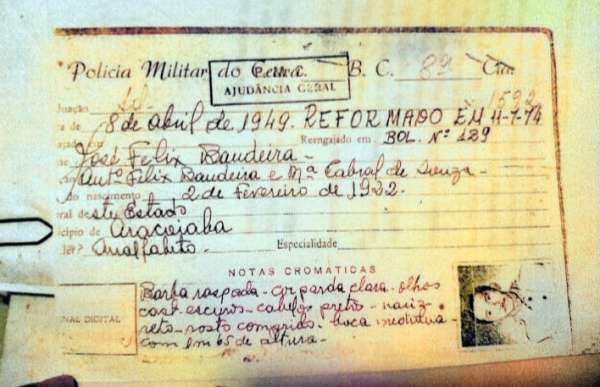 Policia Militar do Ceará. B. C. 8ª Cia.
AJUDÂNCIA GERAL
1592
8 de abril de 1949. REFORMADO EM 11-7-74
Reengajado em BOL. Nº 129
José Felix Bandeira -
Antº Felix Bandeira e Mª Cabral de Souza -
do nascimento 2 de Fevereiro de 1922.
ral deste Estado
cipio de Aracoiaba
ler? Analfabeto. Especialidade
NOTAS CROMATICAS
Barba raspada - cor parda clara - olhos
cast. escuros - cabelos preto - nariz
reto - rosto comprido - boca
NAL DIGITAL
com 1m 65 de altura -